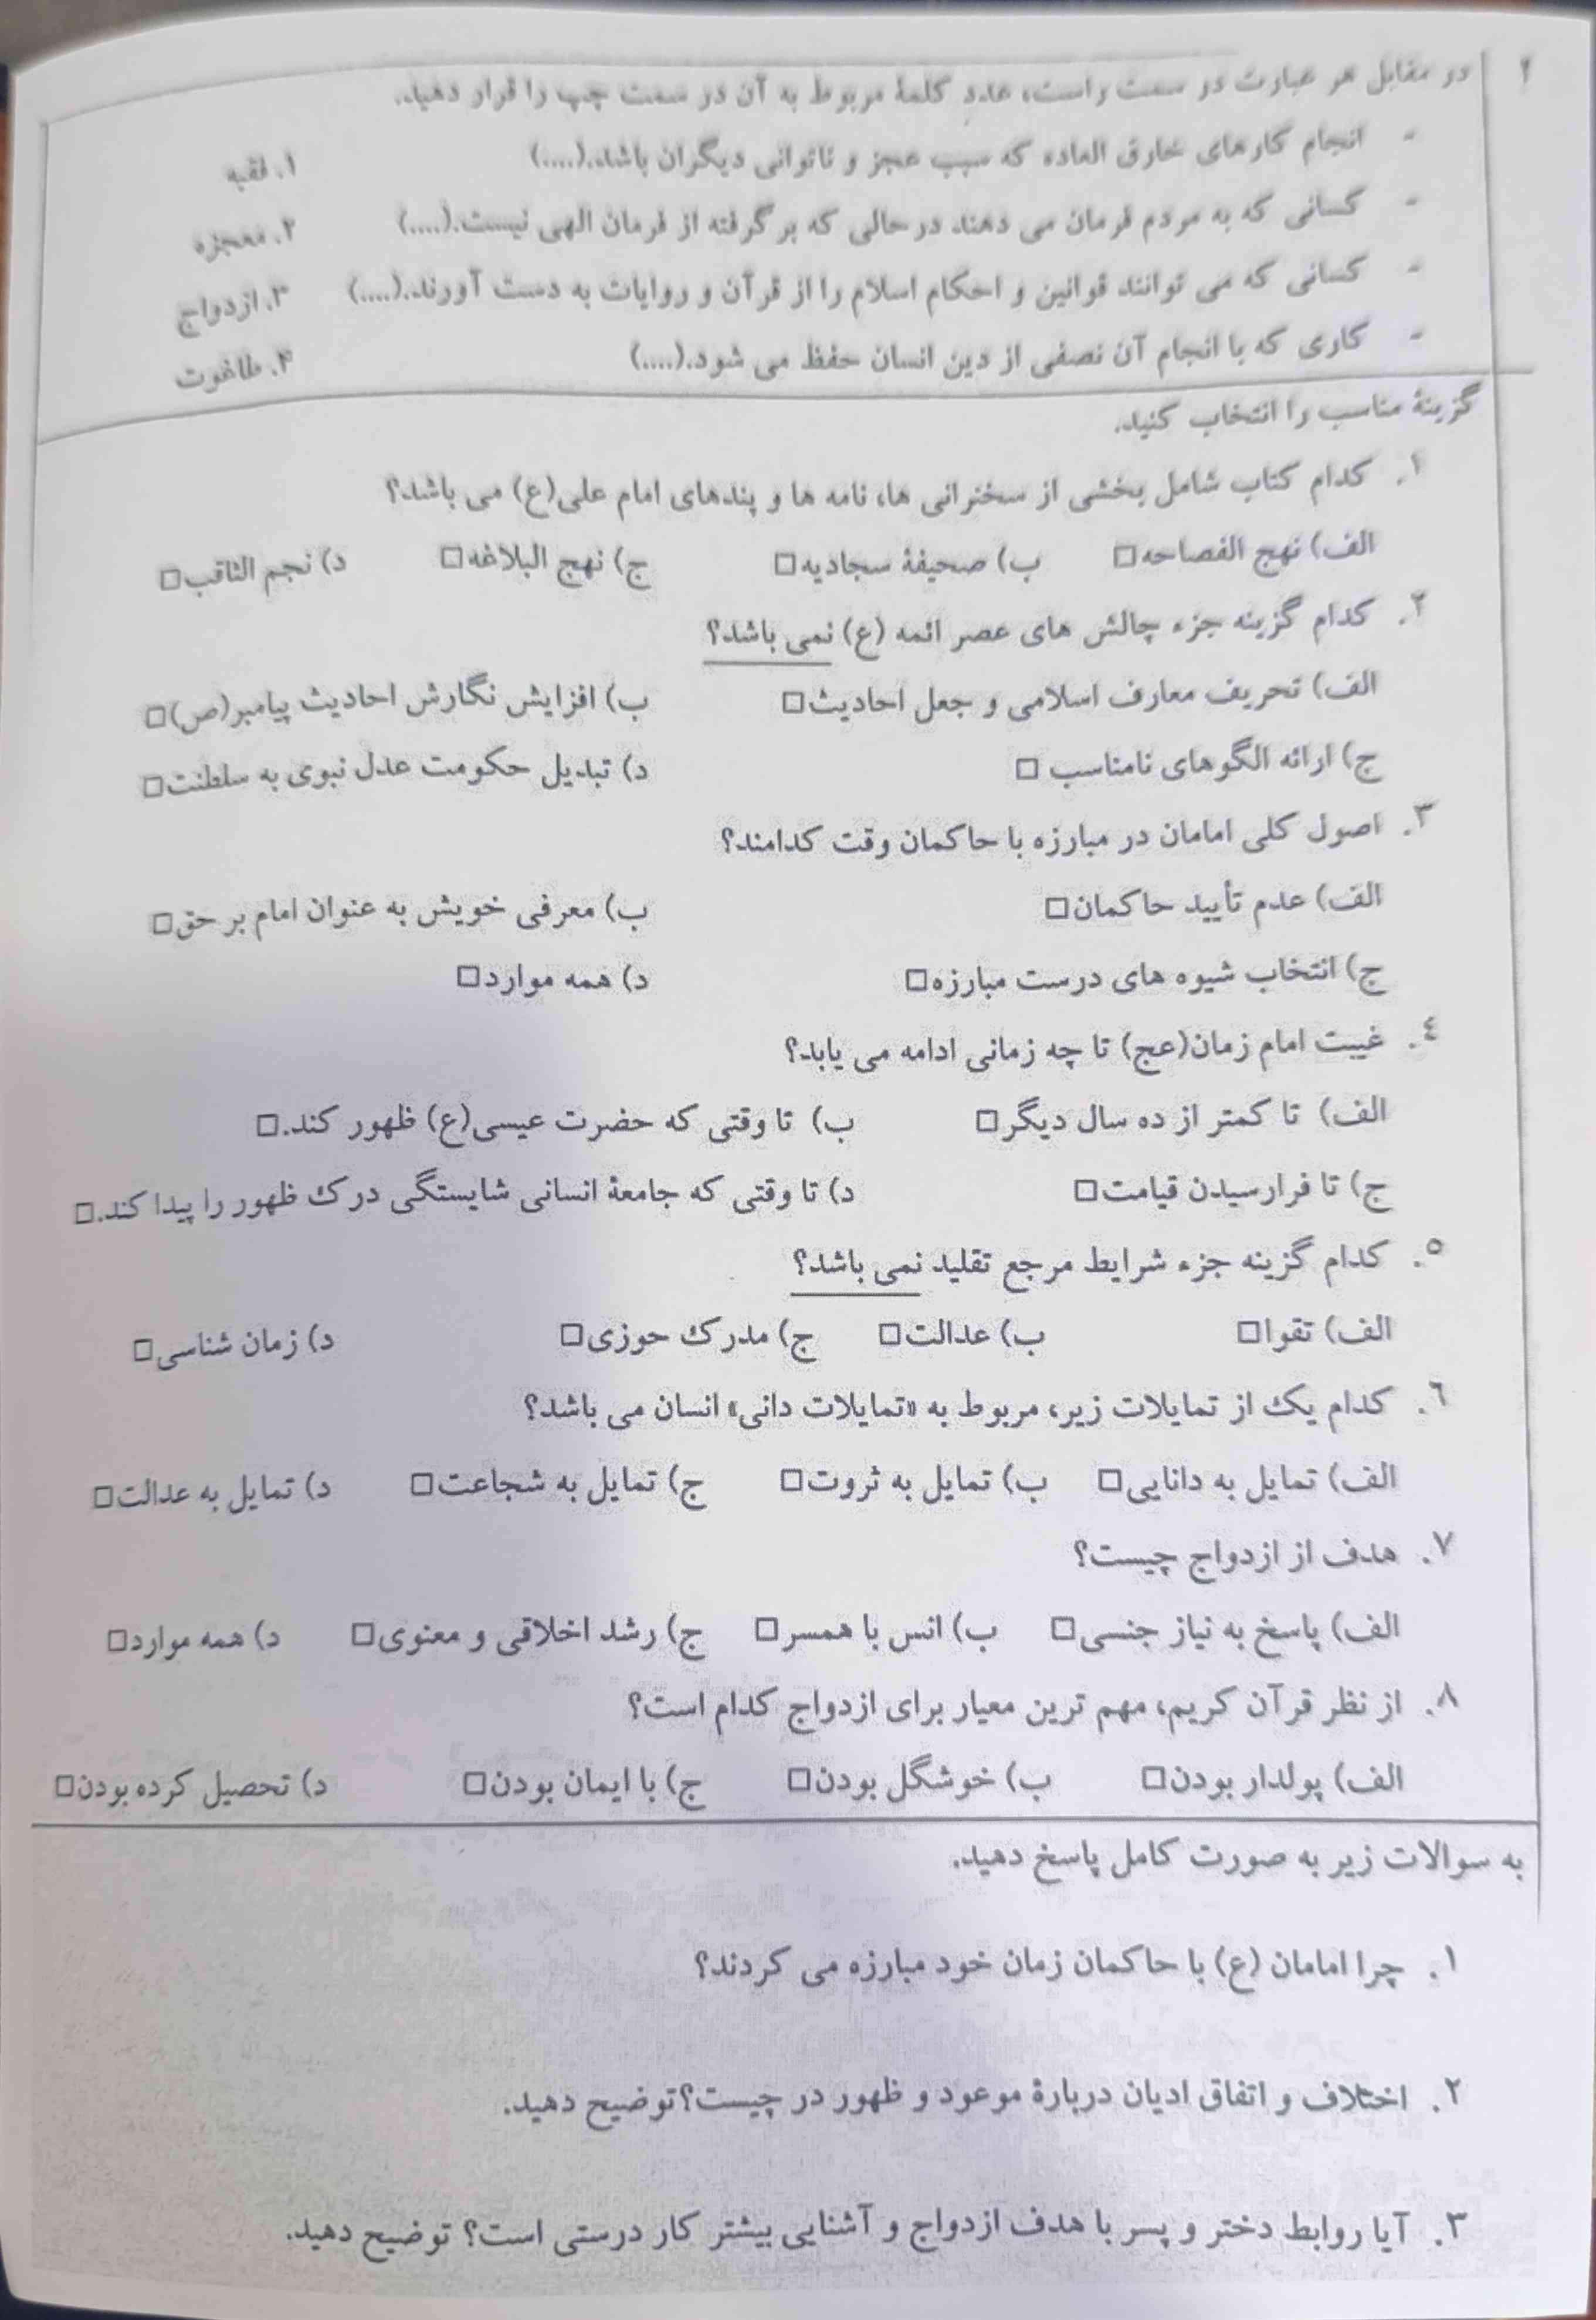 ۲ در مقابل هر عبارت در سمت راست، عدد کلمهٔ مربوط به آن در سمت چپ را قرار دهید.
- انجام کارهای خارق العاده که سبب عجز و ناتوانی دیگران باشد.(....) ۱. فقیه
- کسانی که به مردم فرمان می دهند در حالی که بر گرفته از فرمان الهی نیست.(....) ۲. معجزه
- کسانی که می توانند قوانین و احکام اسلام را از قرآن و روایات به دست آورند.(....) ۳. ازدواج
- کاری که با انجام آن نصفی از دین انسان حفظ می شود.(....) ۴. طاغوت
گزینهٔ مناسب را انتخاب کنید.
۱. کدام کتاب شامل بخشی از سخنرانی ها، نامه ها و پندهای امام علی(ع) می باشد؟
الف) نهج الفصاحه□ ب) صحیفهٔ سجادیه□ ج) نهج البلاغه□ د) نجم الثاقب□
۲. کدام گزینه جزء چالش های عصر ائمه (ع) نمی باشد؟
الف) تحریف معارف اسلامی و جعل احادیث□ ب) افزایش نگارش احادیث پیامبر(ص)□
ج) ارائه الگوهای نامناسب □ د) تبدیل حکومت عدل نبوی به سلطنت□
۳. اصول کلی امامان در مبارزه با حاکمان وقت کدامند؟
الف) عدم تأیید حاکمان□ ب) معرفی خویش به عنوان امام بر حق□
ج) انتخاب شیوه های درست مبارزه□ د) همه موارد□
٤. غیبت امام زمان(عج) تا چه زمانی ادامه می یابد؟
الف) تا کمتر از ده سال دیگر□ ب) تا وقتی که حضرت عیسی(ع) ظهور کند.□
ج) تا فرارسیدن قیامت□ د) تا وقتی که جامعهٔ انسانی شایستگی درک ظهور را پیدا کند.□
٥. کدام گزینه جزء شرایط مرجع تقلید نمی باشد؟
الف) تقوا□ ب) عدالت□ ج) مدرک حوزی□ د) زمان شناسی□
٦. کدام یک از تمایلات زیر، مربوط به «تمایلات دانی» انسان می باشد؟
الف) تمایل به دانایی□ ب) تمایل به ثروت□ ج) تمایل به شجاعت□ د) تمایل به عدالت□
۷. هدف از ازدواج چیست؟
الف) پاسخ به نیاز جنسی□ ب) انس با همسر□ ج) رشد اخلاقی و معنوی□ د) همه موارد□
۸. از نظر قرآن کریم، مهم ترین معیار برای ازدواج کدام است؟
الف) پولدار بودن□ ب) خوشگل بودن□ ج) با ایمان بودن□ د) تحصیل کرده بودن□
به سوالات زیر به صورت کامل پاسخ دهید.
۱. چرا امامان (ع) با حاکمان زمان خود مبارزه می کردند؟
۲. اختلاف و اتفاق ادیان دربارهٔ موعود و ظهور در چیست؟توضیح دهید.
۳. آیا روابط دختر و پسر با هدف ازدواج و آشنایی بیشتر کار درستی است؟ توضیح دهید.